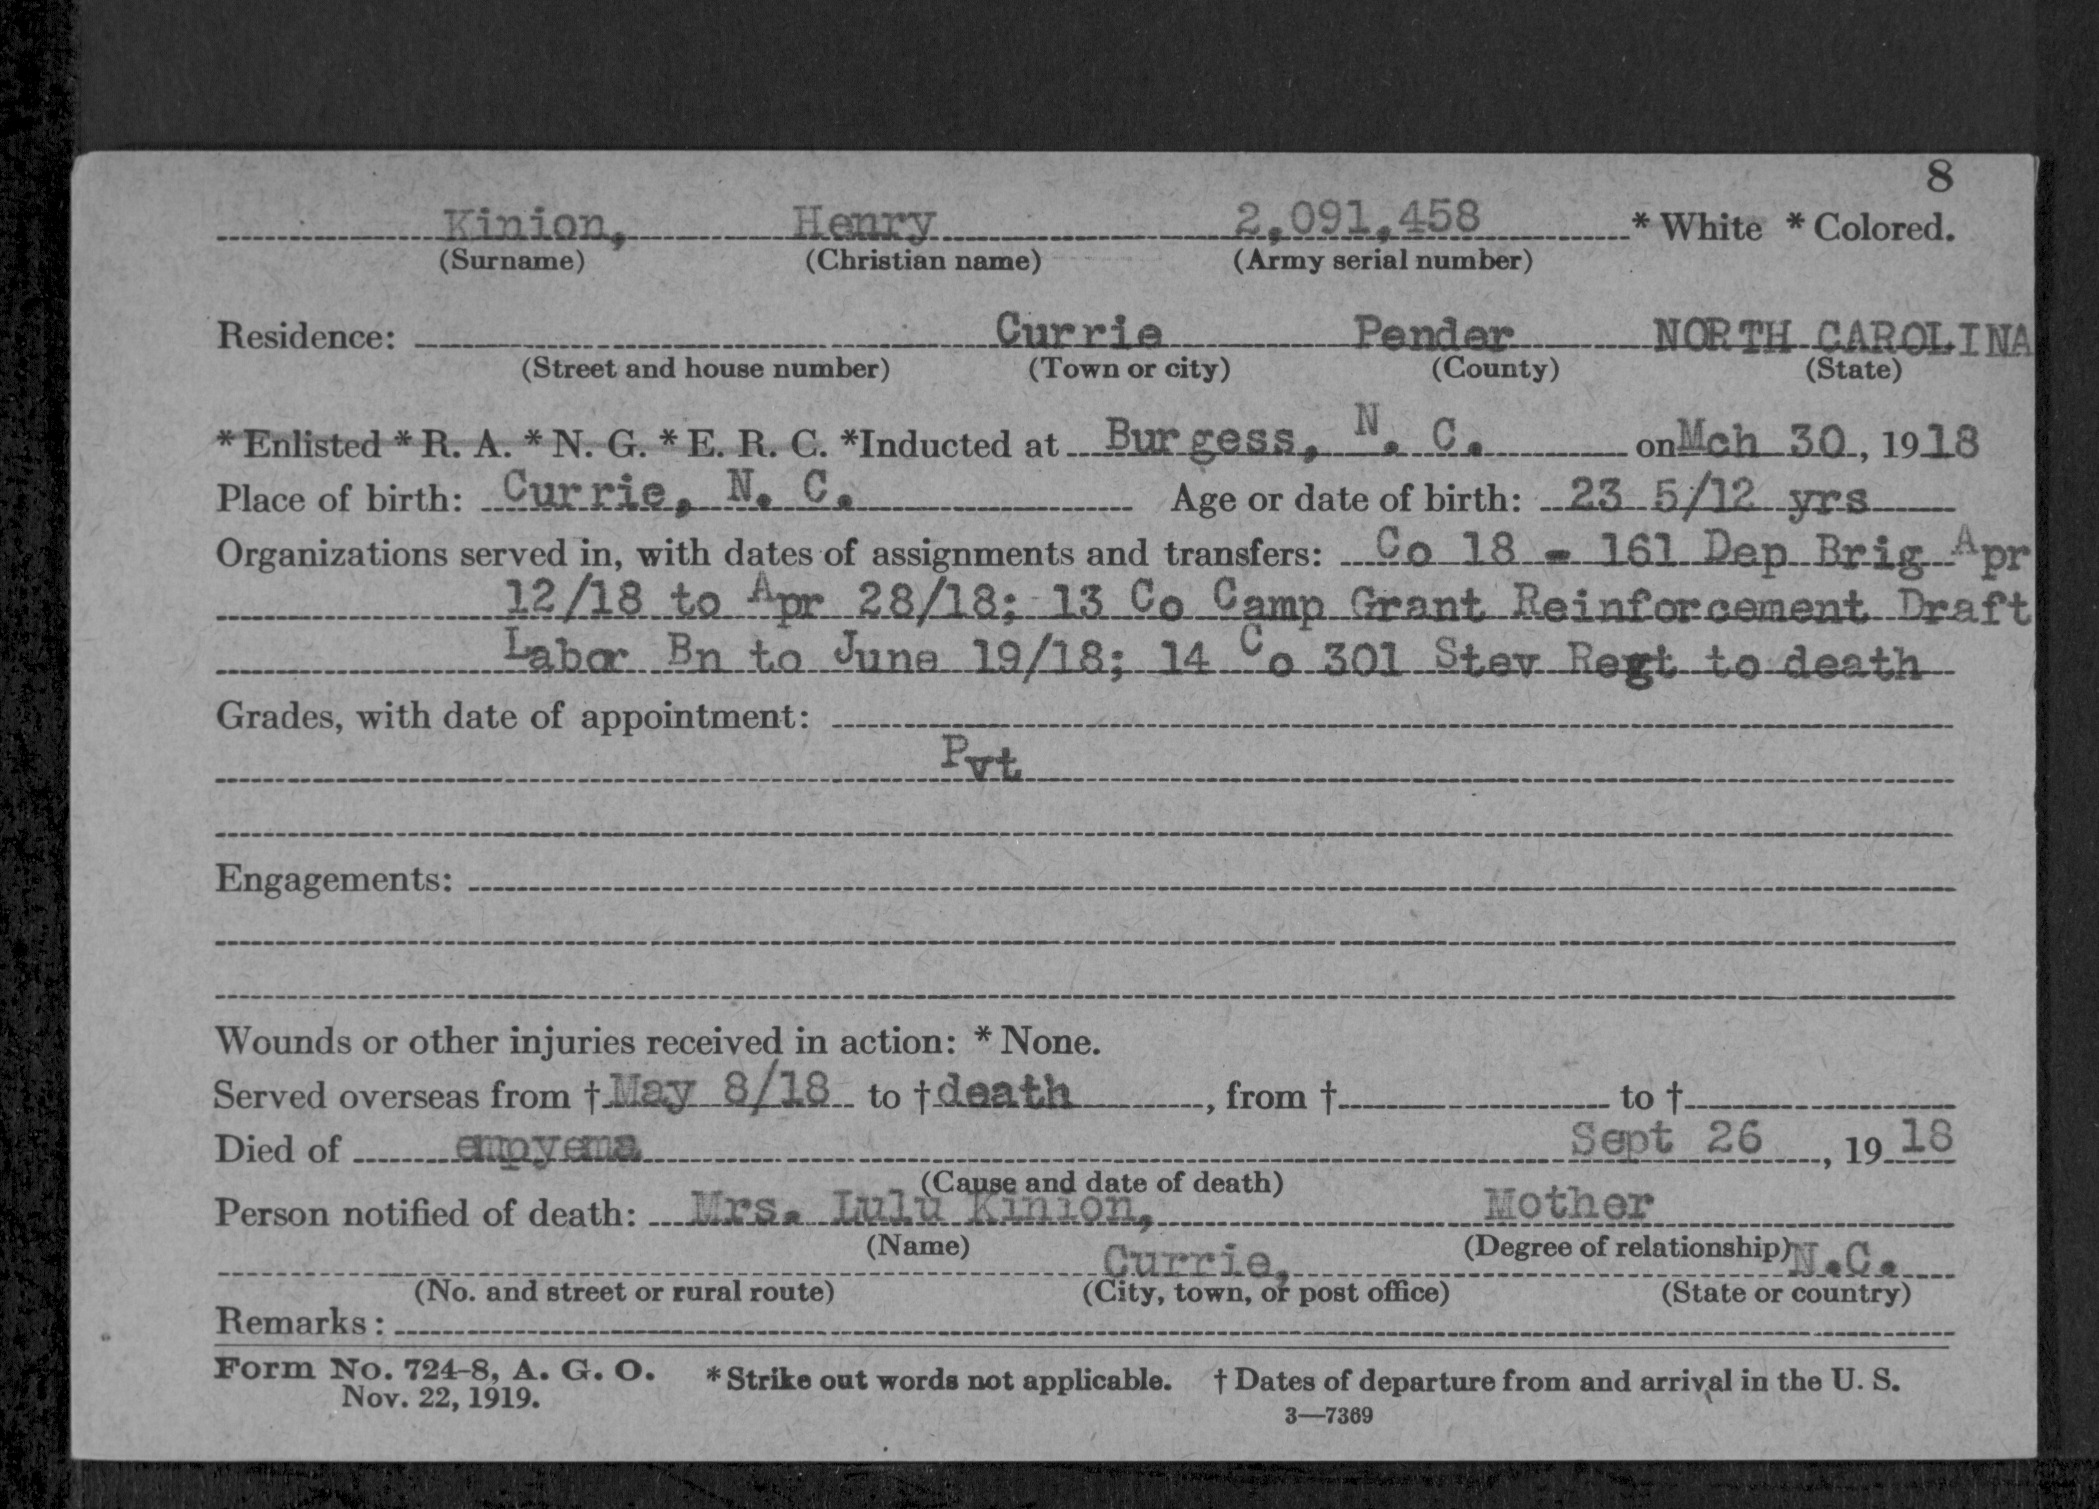 8
Kinion, Henry 2,091,458 * White * Colored.
(Surname) (Christian name) (Army serial number)
Residence: Currie Pender NORTH CAROLINA
(Street and house number) (Town or city) (County) (State)
* Enlisted * R. A. * N. G. * E. R. C. *Inducted at Burgess, N. C. on Mch 30, 1918
Place of birth: Currie, N. C. Age or date of birth: 23 5/12 yrs
Organizations served in, with dates of assignments and transfers: Co 18 - 161 Dep Brig Apr
12/18 to Apr 28/18; 13 Co Camp Grant Reinforcement Draft
Labor Bn to June 19/18; 14 Co 301 Stev Regt to death
Grades, with date of appointment:
Pvt
Engagements:
Wounds or other injuries received in action: * None.
Served overseas from † May 8/18 to † death, from † to †
Died of empyema Sept 26, 1918
(Cause and date of death)
Person notified of death: Mrs. Lulu Kinion, Mother
(Name) (Degree of relationship)
Currie, N.C.
(No. and street or rural route) (City, town, or post office) (State or country)
Remarks:
Form No. 724-8, A. G. O. * Strike out words not applicable. † Dates of departure from and arrival in the U. S.
Nov. 22, 1919.
3—7369